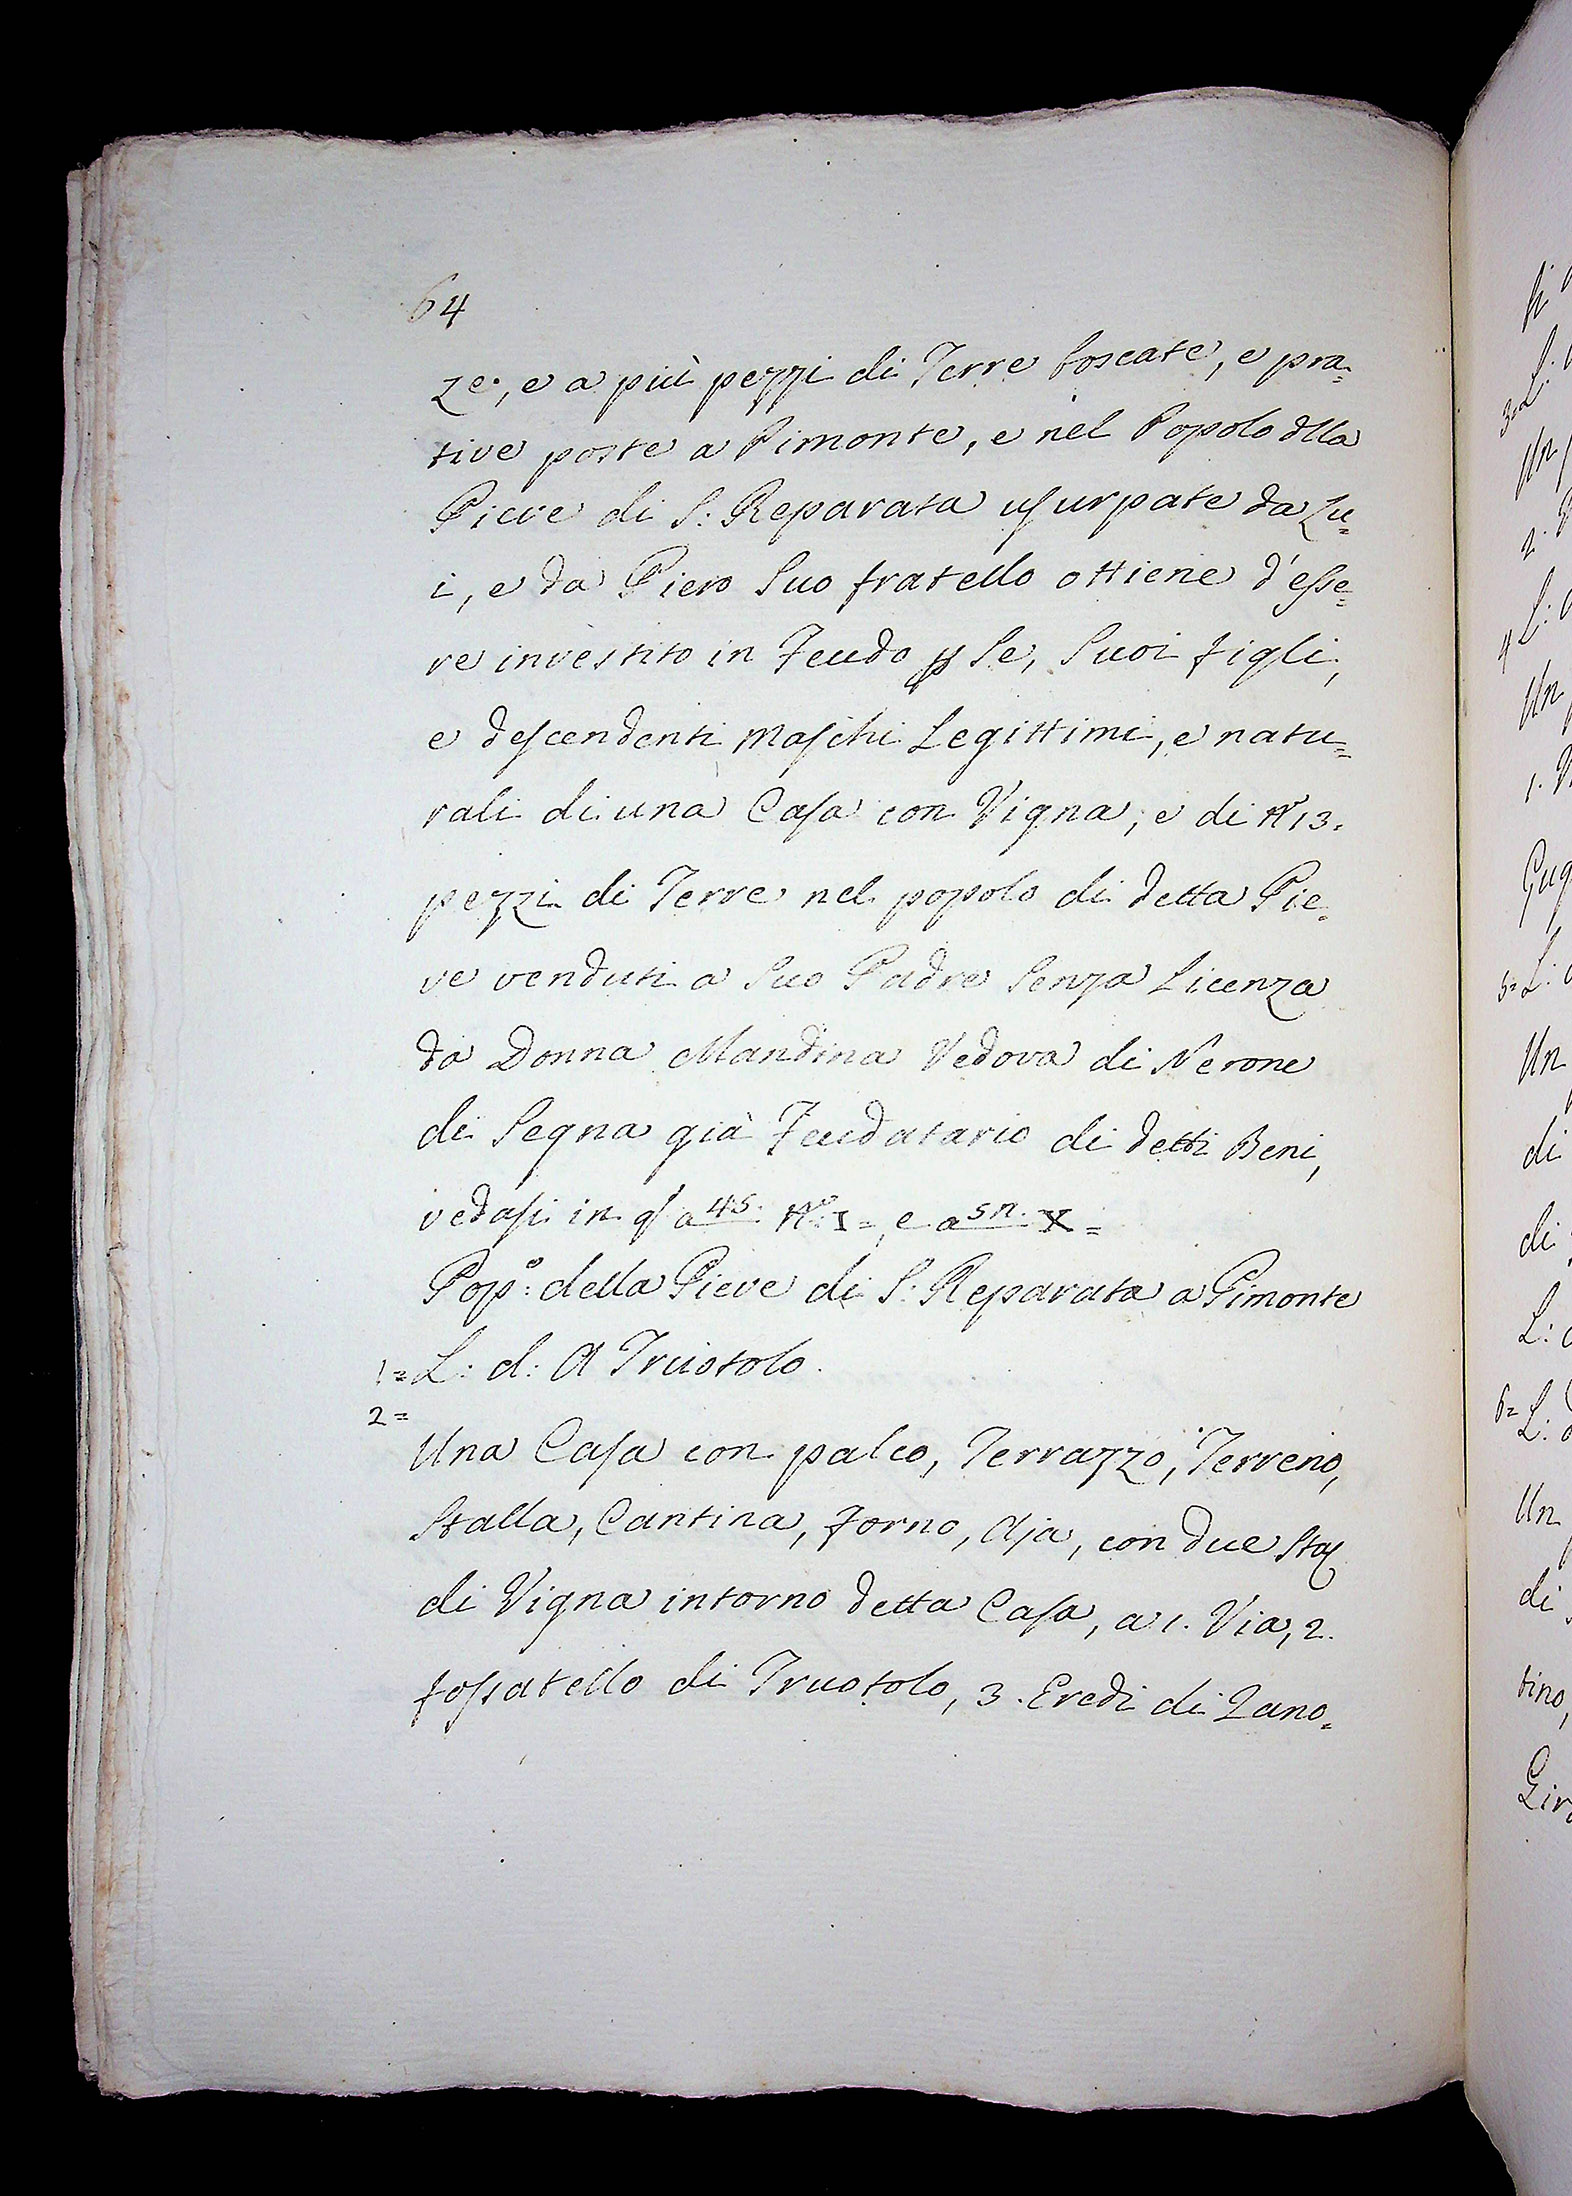 64
ze, e a più pezzi di Terre boscate, e pra=
tive poste a Pimonte, e nel Popolo dlla
Pieve di S: Reparata usurpate da Lu=
i, e da Piero Suo fratello ottiene d'esse=
re investito in Feudo p Se, Suoi figli,
e descendenti Maschi Legittimi, e natu=
rali di una Casa con Vigna, e di N° 13.
pezzi di Terre nel popolo di detta Pie=
ve venduti a Suo Padre Senza Licenza
da Donna Mandina Vedova di Nerone
di Segna già Feudatario di detti Beni,
vedasi in q a 45. N°: I=, e a 5n. X=
Pop°: della Pieve di S: Reparata a Pimonte
1= L: d: A Truotolo.
2=
Una Casa con palco, Terrazzo, Terreno,
Stalla, Cantina, forno, Aja, con due Sta
di Vigna intorno detta Casa, a 1. Via, 2.
fossatello di Truotolo, 3. Eredi di Zano=
3= L:
Un
2.
4 L:
Un
1. V
Gug
5= L:
Un
di
di
L:
6= L:
Un
di
tino,
Giro